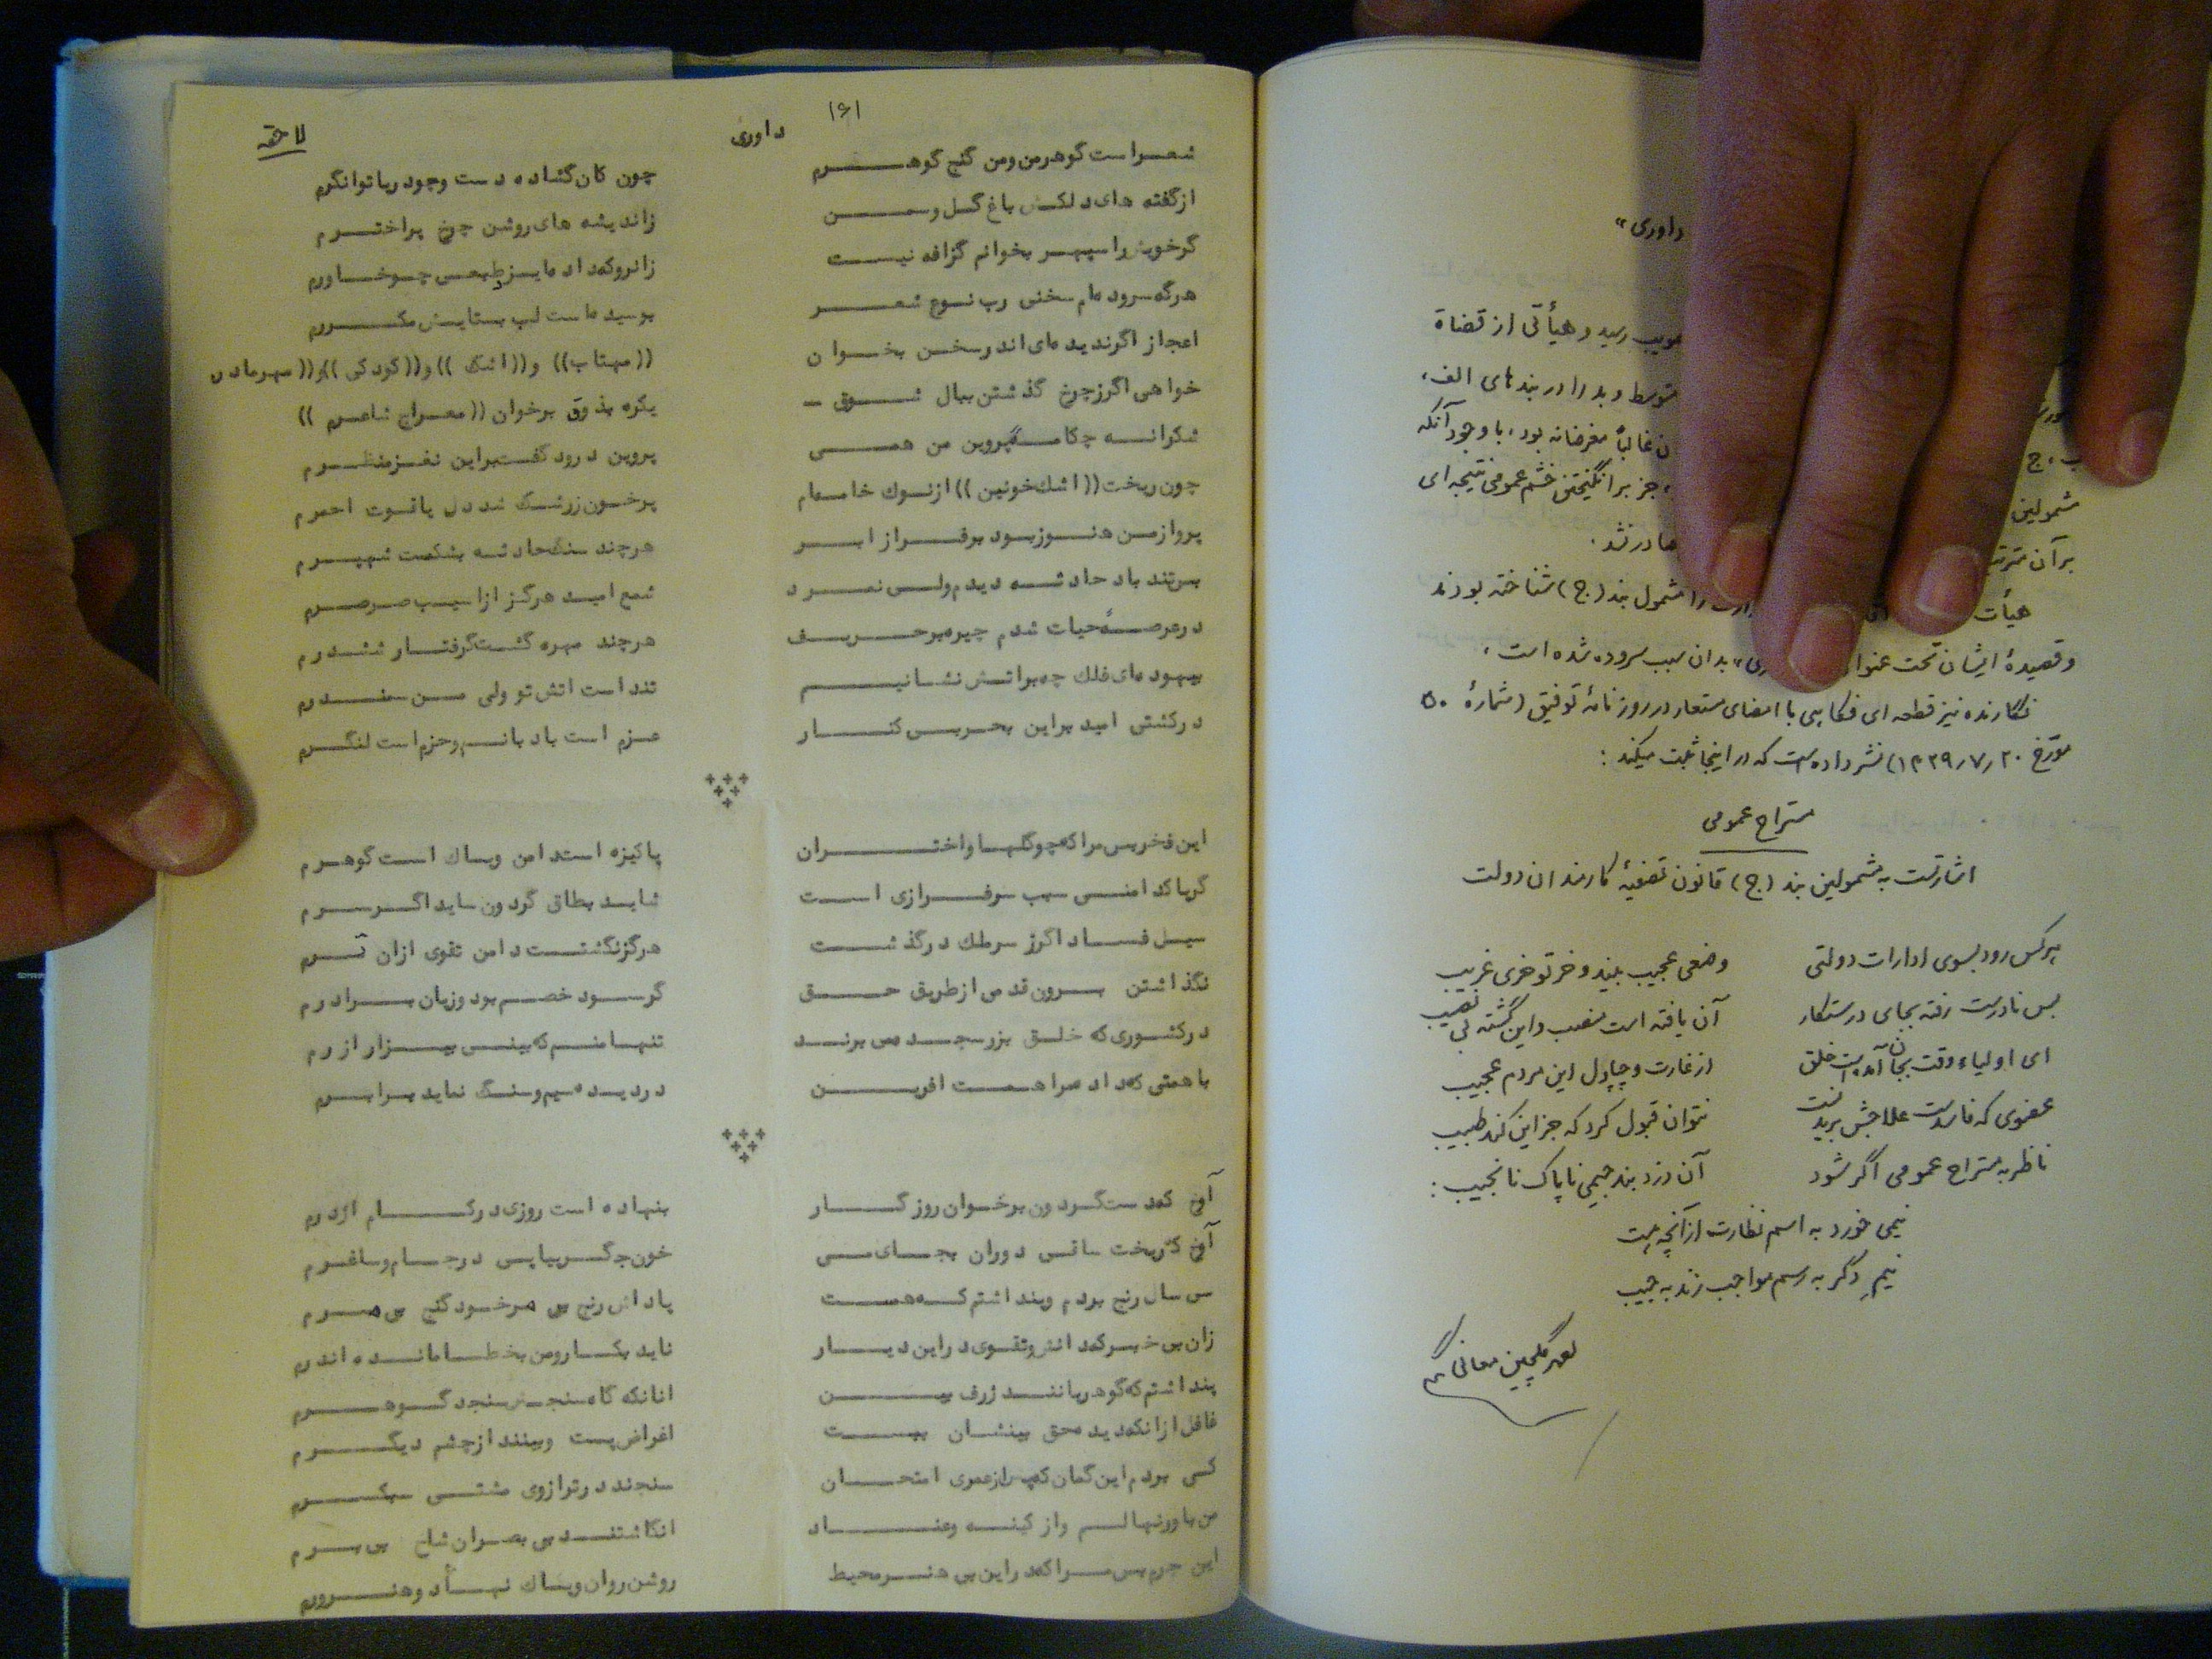 داوری»
صویب رسید و هیأتی از قضاة
متوسط و بد را در بندهای الف،
ب، ج
غالباً مغرضانه بود، با وجود آنکه
جز برانگیختن خشم عمومی نتیجه ای
مشمولین
صادر نشد.
بر آن
هیأت
را مشمول بند (ج) شناخته بودند
و قصیدهٔ ایشان تحت عنوان
بدان سبب سروده شده است،
نگارنده نیز قطعه ای فکاهی با امضای مستعار در روزنامهٔ توفیق (شمارهٔ ۵۰
مورّخ ۲۰ر۷ر۱۳۲۹) نشر داده است که در اینجا ثبت میکند:
مستراح عمومی
اشارتست به مشمولین بند (ج) قانون تصفیهٔ کارمندان دولت
هر کس رود بسوی ادارات دولتی وضعی عجیب بیند و خر تو خری غریب
بس نادرست رفته بجای درستکار آن یافته است منصب و این گشته بی نصیب
ای اولیاء وقت بجان آمدست خلق از غارت و چپاول این مردم عجیب
عضوی که فاسدست علاجش بریدنست نتوان قبول کرد که جز این کند طبیب
ناظر به مستراح عمومی اگر شود آن دزد بند جیمی ناپاک نانجیب:
نیمی خورد به اسم نظارت از آنچه هست
نیم دگر به رسم مواجب زند به جیب
گلچین معانی
۱۶۱
داوری
لاحقه
شعراست گوهر من و من گنج گوهرم چون کان گشاده دست وجود ریا توانگرم
از گفته های دلکش باغ گل و سمن زاندیشه های روشن چرخ پراخترم
گر خویش را سپهر بخوانم گزافه نیست زانرو که داده ایزد طبعی چو خاورم
هرگه سروده ام سخنی رب نوع شعر بوسیده است لب بستایش مکررم
اعجاز اگر ندیده ای اندر سخن بخوان ((مهتاب)) و ((اشک)) و ((کودکی)) و ((مهر مادر))
خواهی اگر ز چرخ گذشتن ببال شوق - یکره بذوق برخوان ((معراج شاعرم))
شکرانه چکامهٔ پروین من همی پروین درود گفت براین نغز منظرم
چون ریخت ((اشک خونین)) از نوک خامه ام پرخون ز رشک شد دل یاقوت احمرم
پرواز من هنوز بود بر فراز ابر هرچند سنگ حادثه بشکست شهپرم
بس تند باد حادثه دیدم ولی نمرد شمع امید هرگز از اسیب صرصرم
در عرصهٔ حیات شدم چیره بر حریف هرچند مهره گشت گرفتار ششدرم
بیهوده ای فلک چه براتش نشانیم تند است اتش تو ولی من سمندرم
در کشتی امید براین بحر بی کنار عزم است بادبانم و حزم است لنگرم
این فخر بس مرا که چو گلها و اختران پاکیزه است دامن و پاک است گوهرم
گر پاکدامنی سبب سرفرازی است شاید بطاق گردون ساید اگر سرم
سیل فساد اگرز سر ملک درگذشت هرگز نگشت دامن تقوی ازان ترم
نگذاشتن برون قدمی از طریق حق گر سود خصم بود و زیان برادرم
در کشوری که خلق بزر سجده می برند تنها منم که بینی بیزار از زرم
با همتی که داده مرا همت افرین در دیده سیم و سنگ نماید برابرم
آوخ که دست گردون برخوان روزگار بنهاده است روزی در کام اژدرم
آوخ که ریخت ساقی دوران بجای می خون جگر بیاپی در جام و ساغرم
سی سال رنج بردم و پنداشتم که هست پاداش رنج بی مر خود گنج بی مرم
زان بی خبر که دانش و تقوی در این دیار ناید بکار و من بخطا مانده اندرم
پنداشتم که گوهریانند ژرف بین انانکه گاه سنجش سنجد گوهرم
غافل از انکه دیده حق بینشان ببست اغراض پست و بینند از چشم دیگرم
کی بردم این گمان که پس از عمری امتحان سنجند در ترازوی مشتی سبکسرم
من بارور نهالم و از کینه و عناد انگاشتند بی بصران شاخ بی برم
این جرم بس مرا که در این بی هنر محیط روشن روان و پاک نهاد و هنرورم